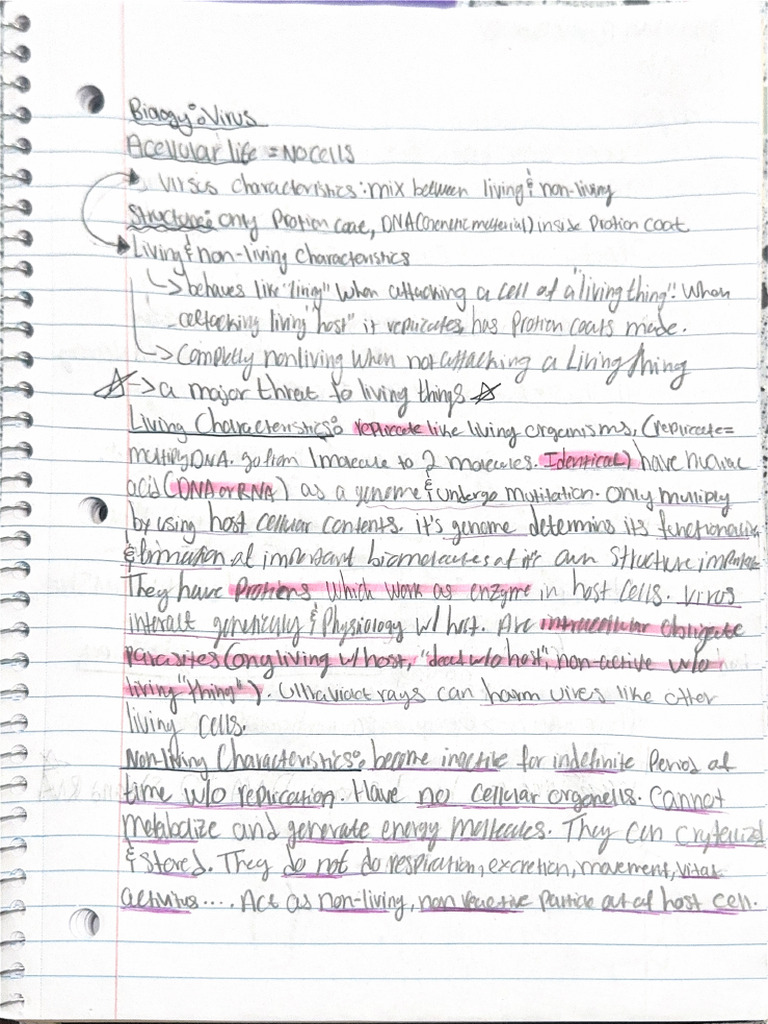 Biology: Virus
Acellular life = No cells
Virsus characteristics: mix between living & non-living
Structure: only Protion coat, DNA (Genetic material) inside Protion coat
Living & non-living characteristics
↳ behaves like "living" when attacking a cell of a "living thing". When
attacking living "host" it replicates, has Protion coats made.
↳ Completly nonliving when not attacking a Living thing
☆ -> a major threat to living things ☆
Living Characteristics: replicate like living organisms, (replicate =
multiply DNA. go from 1 molecule to 2 molecules. Identical) have nucliac
acid (DNA or RNA) as a genome & undergo mutitation. Only multiply
by using host cellular contents. it's genome determins its functionality
& formation of important biomolecules of it's own structure
They have Protiens which work as enzyme in host cells. Virus
interact genetically & Physiology w/ host. Are intracellular obligate
Parasites (only living w/ host, "dead w/o host", non-active w/o
living "thing"). Ultraviolet rays can harm virus like other
living cells.
Non-living Characteristics: become inactive for indefinite Period of
time w/o replication. Have no cellular organells. Cannot
Metabolize and generate energy mollecules. They can
& stored. They do not do respiration, excretion, movement, vital
activitus.... Act as non-living, non reactive Particle out of host cell.